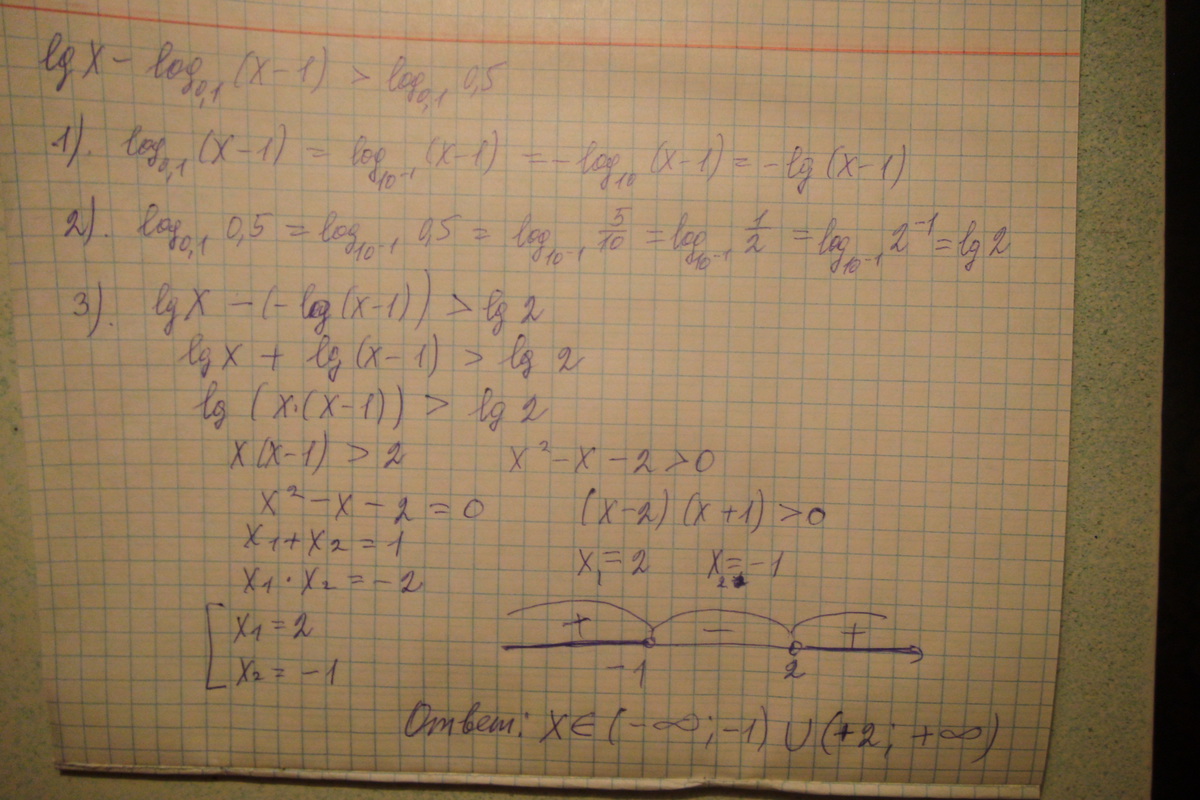 lg x − log₀,₁ (x−1) > log₀,₁ 0,5
1). log₀,₁ (x−1) = log₁₀₋₁ (x−1) = − log₁₀ (x−1) = − lg (x−1)
2). log₀,₁ 0,5 = log₁₀₋₁ 0,5 = log₁₀₋₁ 5/10 = log₁₀₋₁ 1/2 = log₁₀₋₁ 2⁻¹ = lg 2
3). lg x − (− log (x−1)) > lg 2
lg x + lg (x−1) > lg 2
lg (x·(x−1)) > lg 2
x(x−1) > 2 x² − x − 2 > 0
x² − x − 2 = 0 (x−2)(x+1) > 0
x₁ + x₂ = 1
x₁ = 2 x₂ = −1
x₁ · x₂ = −2
[ x₁ = 2
x₂ = −1
+ − +
−1 2
Ответ: x ∈ (−∞; −1) ∪ (+2; +∞)